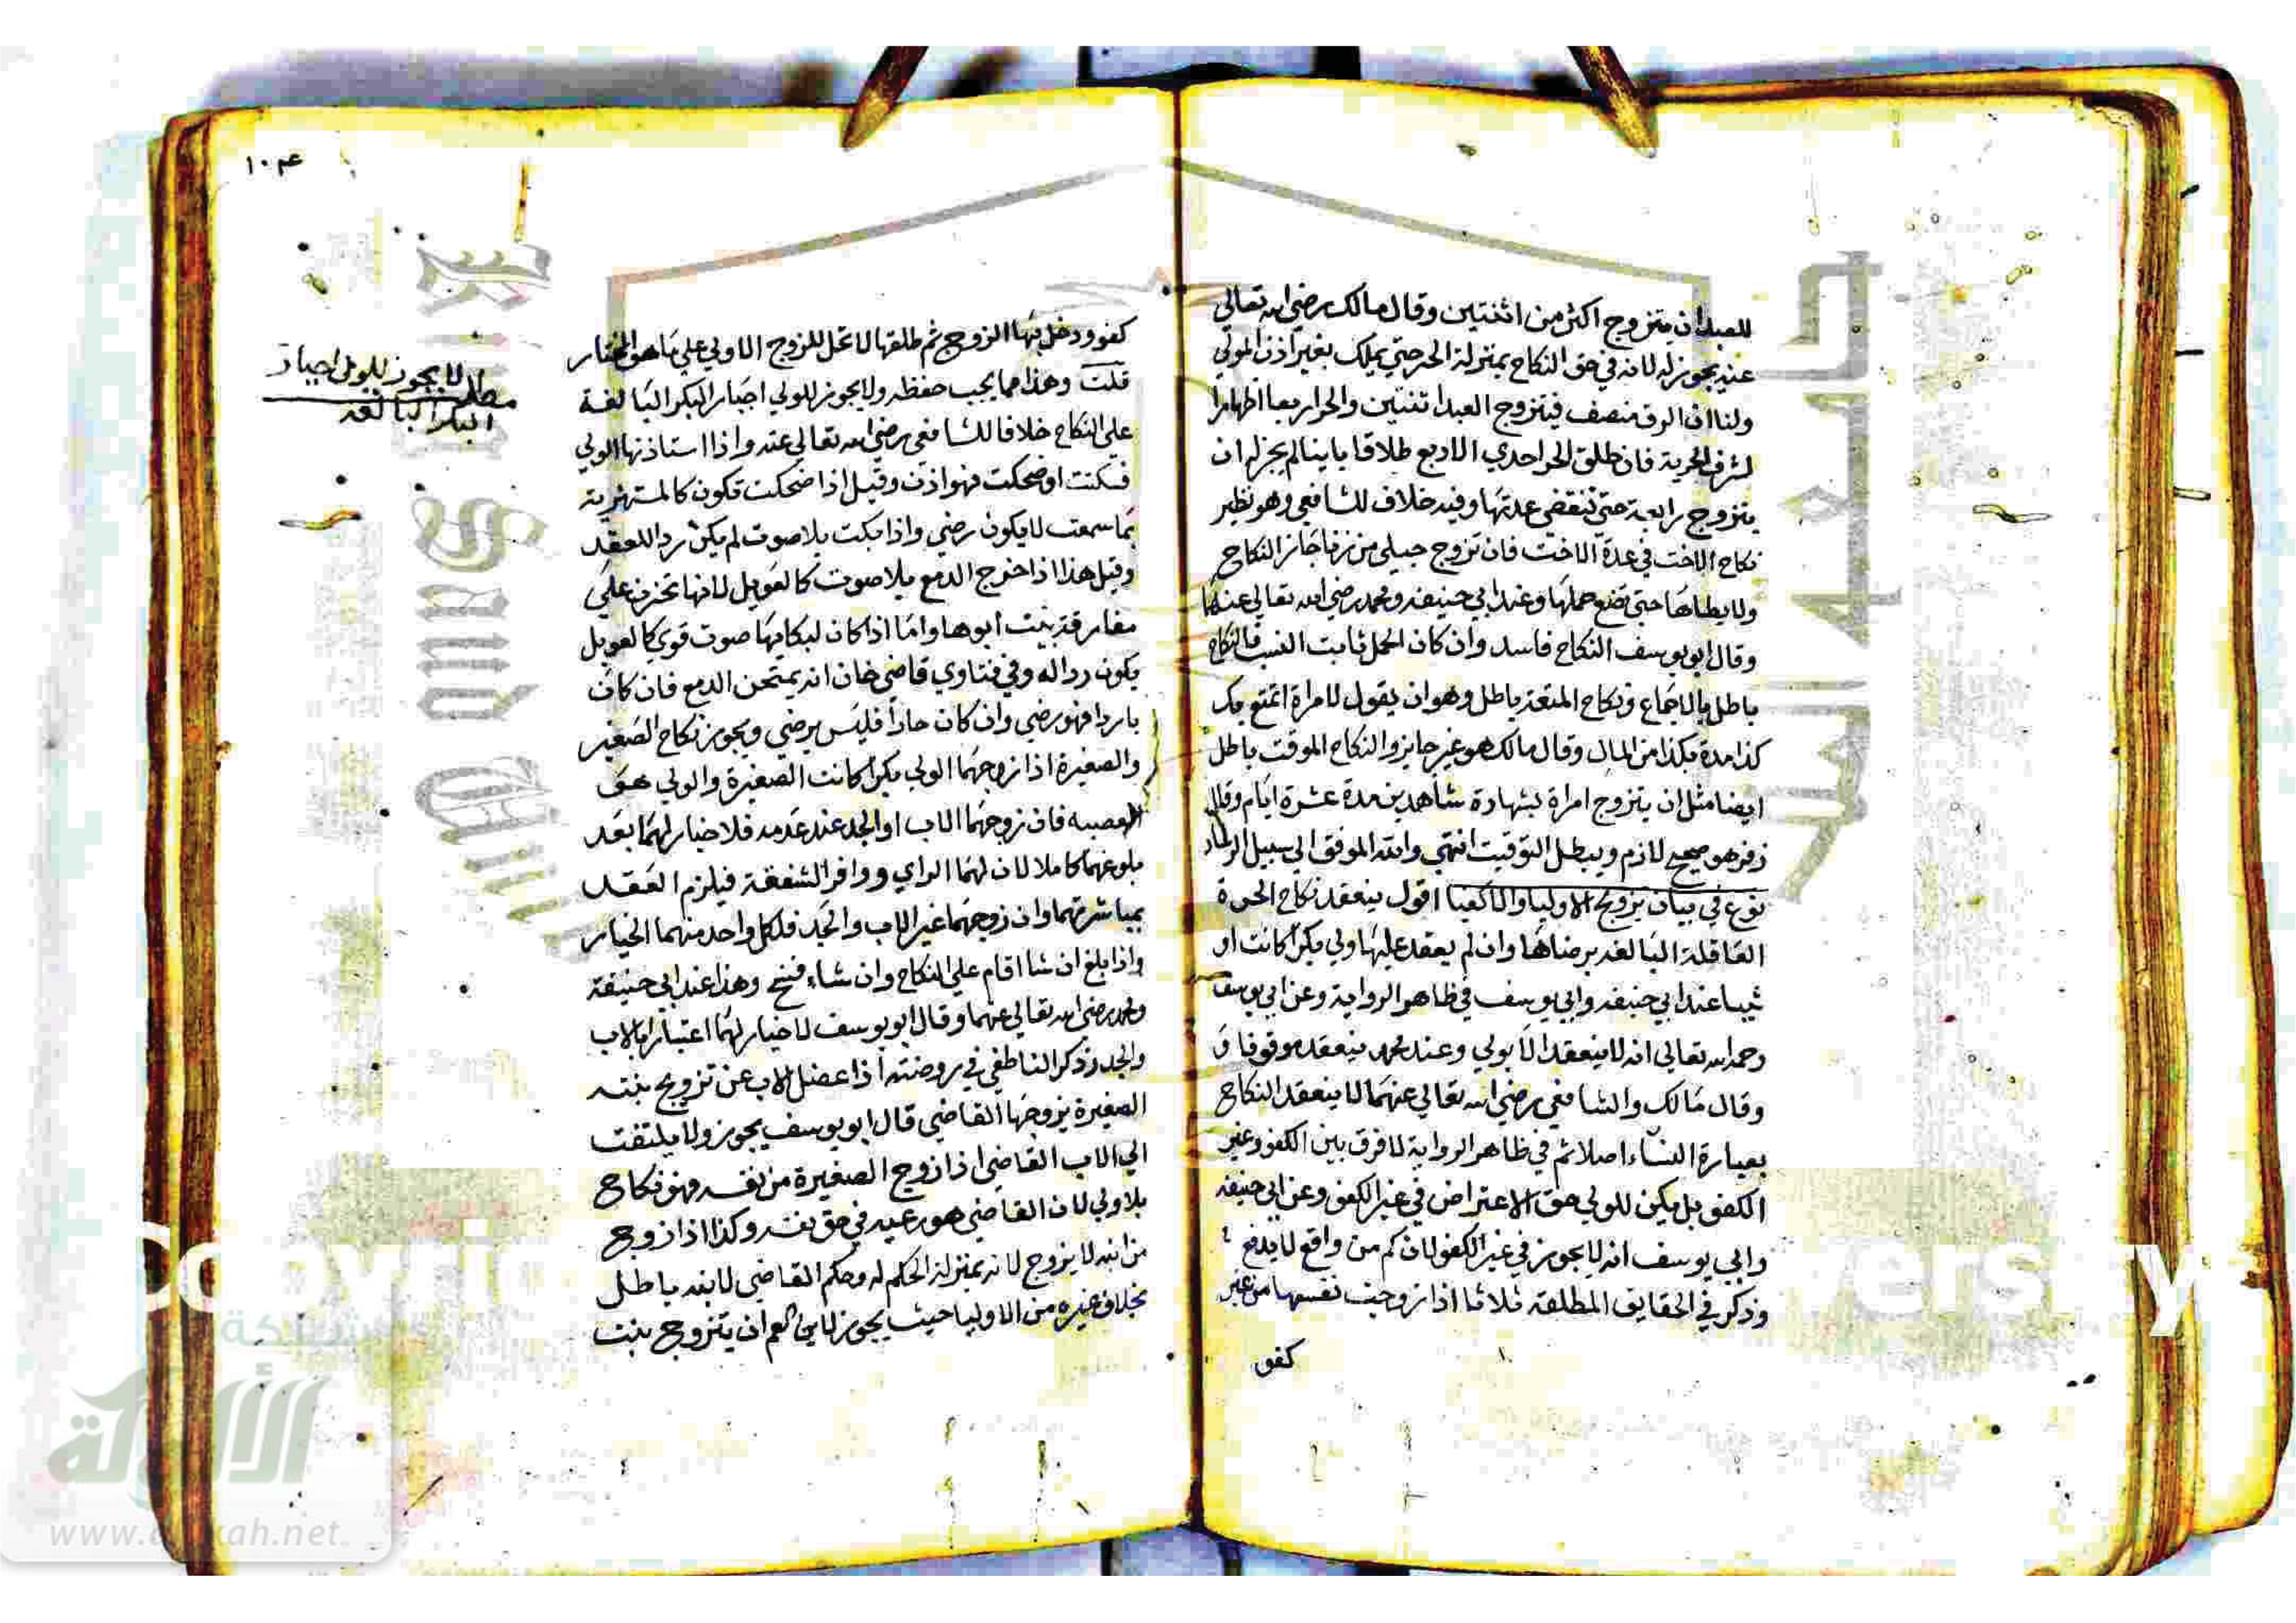 للعبد ان يتزوج اكثر من اثنتين وقال مالك رضي الله تعالى
عنه يجوز له لانه في حق النكاح بمنزلة الحر حتي يملك بغير اذن المولي
ولنا ان الرق منصف فيتزوج العبد اثنتين والحر اربعا اظهارا
لشرف الحرية فان طلق الحر احدي الاربع طلاقا باينا لم يجز له ان
يتزوج رابعة حتي تنقضي عدتها وفيه خلاف للشافعي وهو نظير
نكاح الاخت في عدة الاخت فان تزوج حبلي من زنا جاز النكاح
ولا يطاها حتي تضع حملها وعند ابي حنيفه ومحمد رضي الله تعالي عنهما
وقال ابو يوسف النكاح فاسد وان كان الحمل ثابت النسب فالنكاح
باطل بالاجماع ونكاح المتعة باطل وهو ان يقول لامراة اتمتع بك
كذا مدة بكذا من المال وقال مالك هو غير جايز والنكاح الموقت باطل
ايضا مثل ان يتزوج امراة بشهادة شاهدين مدة عشرة ايام وقال
زفر هو صحيح لازم ويبطل التوقيت انتهي والله الموفق الي سبيل الرشاد
نوع في بيان تزويج الاوليا والاكفيا اقول ينعقد نكاح الحرة
العاقلة البالغه برضاها وان لم يعقد عليها ولي بكرا كانت او
ثيبا عند ابي حنيفه وابي يوسف في ظاهر الرواية وعن ابي يوسف
رحمه الله تعالي انه لا ينعقد الا بولي وعند محمد ينعقد موقوفا و
وقال مالك والشافعي رضي الله تعالي عنهما لا ينعقد النكاح
بعبارة النساء اصلا ثم في ظاهر الرواية لا فرق بين الكفو وغير
الكفو بل يكن للولي حق الاعتراض في غير الكفو وعن ابي حنيفه
وابي يوسف انه لا يجوز في غير الكفو لان كم من واقع لا يدفع
وذكر في الحقايق المطلقه ثلاثا اذا زوجت نفسها من غير
كفو
كفو ودخل بها الزوج ثم طلقها لا تحل للزوج الاولي علي ما هو المختار
قلت وهذا مما يجب حفظه ولا يجوز للولي اجبار البكر البالغة
علي النكاح خلافا للشافعي رضي الله تعالي عنه واذا استاذنها الولي
فسكتت او ضحكت فهو اذن وقيل اذا ضحكت تكون كالمستهزية
بما سمعت لا يكون رضي واذا بكت بلا صوت لم يكن ردا للعقد
وقيل هذا اذا خرج الدمع بلا صوت كالعويل لانها تحزن علي
مفارقة بيت ابوها واما اذا كان لبكايها صوت قوي كالعويل
يكون ردا له وفي فتاوي قاضي خان انه يمتحن الدمع فان كان
باردا فهو رضي وان كان حارا فليس برضي ويجوز نكاح الصغير
والصغيرة اذا زوجهما الولي بكرا كانت الصغيرة والولي هو
العصبه فان زوجهما الاب او الجد عند عدمه فلا خيار لهما بعد
بلوغهما كاملا لان لهما الراي ووافر الشفقة فيلزم العقد
بمباشرتهما وان زوجهما غير الاب والجد فلكل واحد منهما الخيار
واذا بلغ ان شا اقام علي النكاح وان شاء فسخ وهذا عند ابي حنيفة
ومحمد رضي الله تعالي عنهما وقال ابو يوسف لا خيار لهما اعتبارا بالاب
والجد وذكر الناطفي في روضته اذا عضل الاب عن تزويج بنته
الصغيرة يزوجها القاضي قال ابو يوسف يجوز ولا يلتفت
الي الاب القاضي اذا زوج الصغيرة من نفسه فهو نكاح
بلا ولي لان القاضي هو رعيه في حق نفسه وكذا اذا زوج
من ابنه لا يزوج لانه بمنزلة الحكم له وحكم القاضي لابنه باطل
بخلاف غيره من الاوليا حيث يجوز لابن العم ان يتزوج بنت
مطلب لا يجوز للولي اجبار
البكر البالغه
شبكة
الألوكة
www.alukah.net